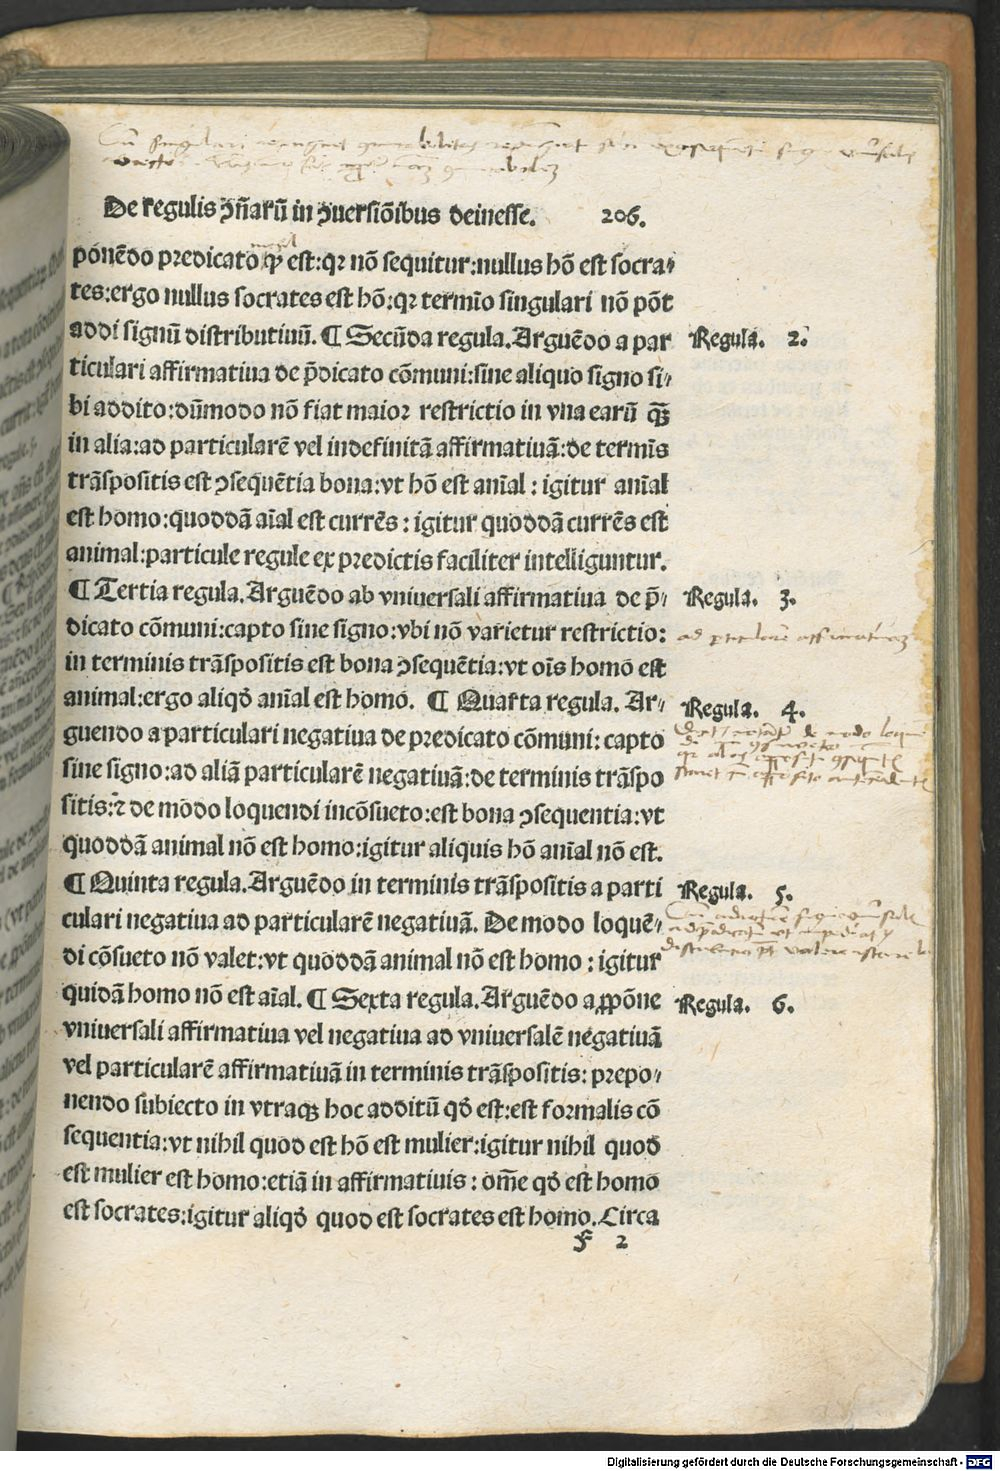 De regulis ꝯñarũ in ꝯuersiõibus deinesse. 206.
ponẽdo predicato ꝙ est:qꝛ nõ sequitur:nullus hõ est socra⸗
tes:ergo nullus socrates est hõ:qꝛ termĩo singulari nõ põt
addi signũ distributiuũ. ¶ Secũda regula. Arguẽdo a par
ticulari affirmatiua de p̃dicato cõmuni:sine aliquo signo si⸗
bi addito:dũmodo nõ fiat maior restrictio in vna earũ ꝙ̃
in alia:ad particularẽ vel indefinitã affirmatiuã:de termĩs
trãspositis est ꝯsequẽtia bona:vt hõ est anĩal : igitur anĩal
est homo:quoddã aĩal est currẽs : igitur quoddã currẽs est
animal:particule regule ex predictis faciliter intelliguntur.
¶ Tertia regula. Arguẽdo ab vniuersali affirmatiua de p̃⸗
dicato cõmuni:capto sine signo:vbi nõ varietur restrictio:
in terminis trãspositis est bona ꝯsequẽtia:vt oĩs homo est
animal:ergo aliqđ anĩal est homo. ¶ Quarta regula. Ar⸗
guendo a particulari negatiua de predicato cõmuni: capto
sine signo:ad aliã particularẽ negatiuã:de terminis trãspo
sitis:⁊ de modo loquendi incõsueto:est bona ꝯsequentia:vt
quoddã animal nõ est homo:igitur aliquis hõ anĩal nõ est.
¶ Quinta regula. Arguẽdo in terminis trãspositis a parti
culari negatiua ad particularẽ negatiuã. De modo loquẽ⸗
di cõsueto nõ valet:vt quoddã animal nõ est homo : igitur
quidã homo nõ est aĩal. ¶ Sexta regula. Arguẽdo a ꝓpõne
vniuersali affirmatiua vel negatiua ad vniuersalẽ negatiuã
vel particularẽ affirmatiuã in terminis trãspositis: prepo⸗
nendo subiecto in vtraqꝫ hoc additũ qđ est:est formalis cõ
sequentia:vt nihil quod est hõ est mulier:igitur nihil quod
est mulier est homo:etiã in affirmatiuis : om̃e qđ est homo
est socrates:igitur aliqđ quod est socrates est homo. Circa
f 2
Regula. 2.
Regula. 3.
ad affirmatiuam
Regula. 4.
de modo
Regula. 5.
Regula. 6.
Digitalisierung gefördert durch die Deutsche Forschungsgemeinschaft - DFG